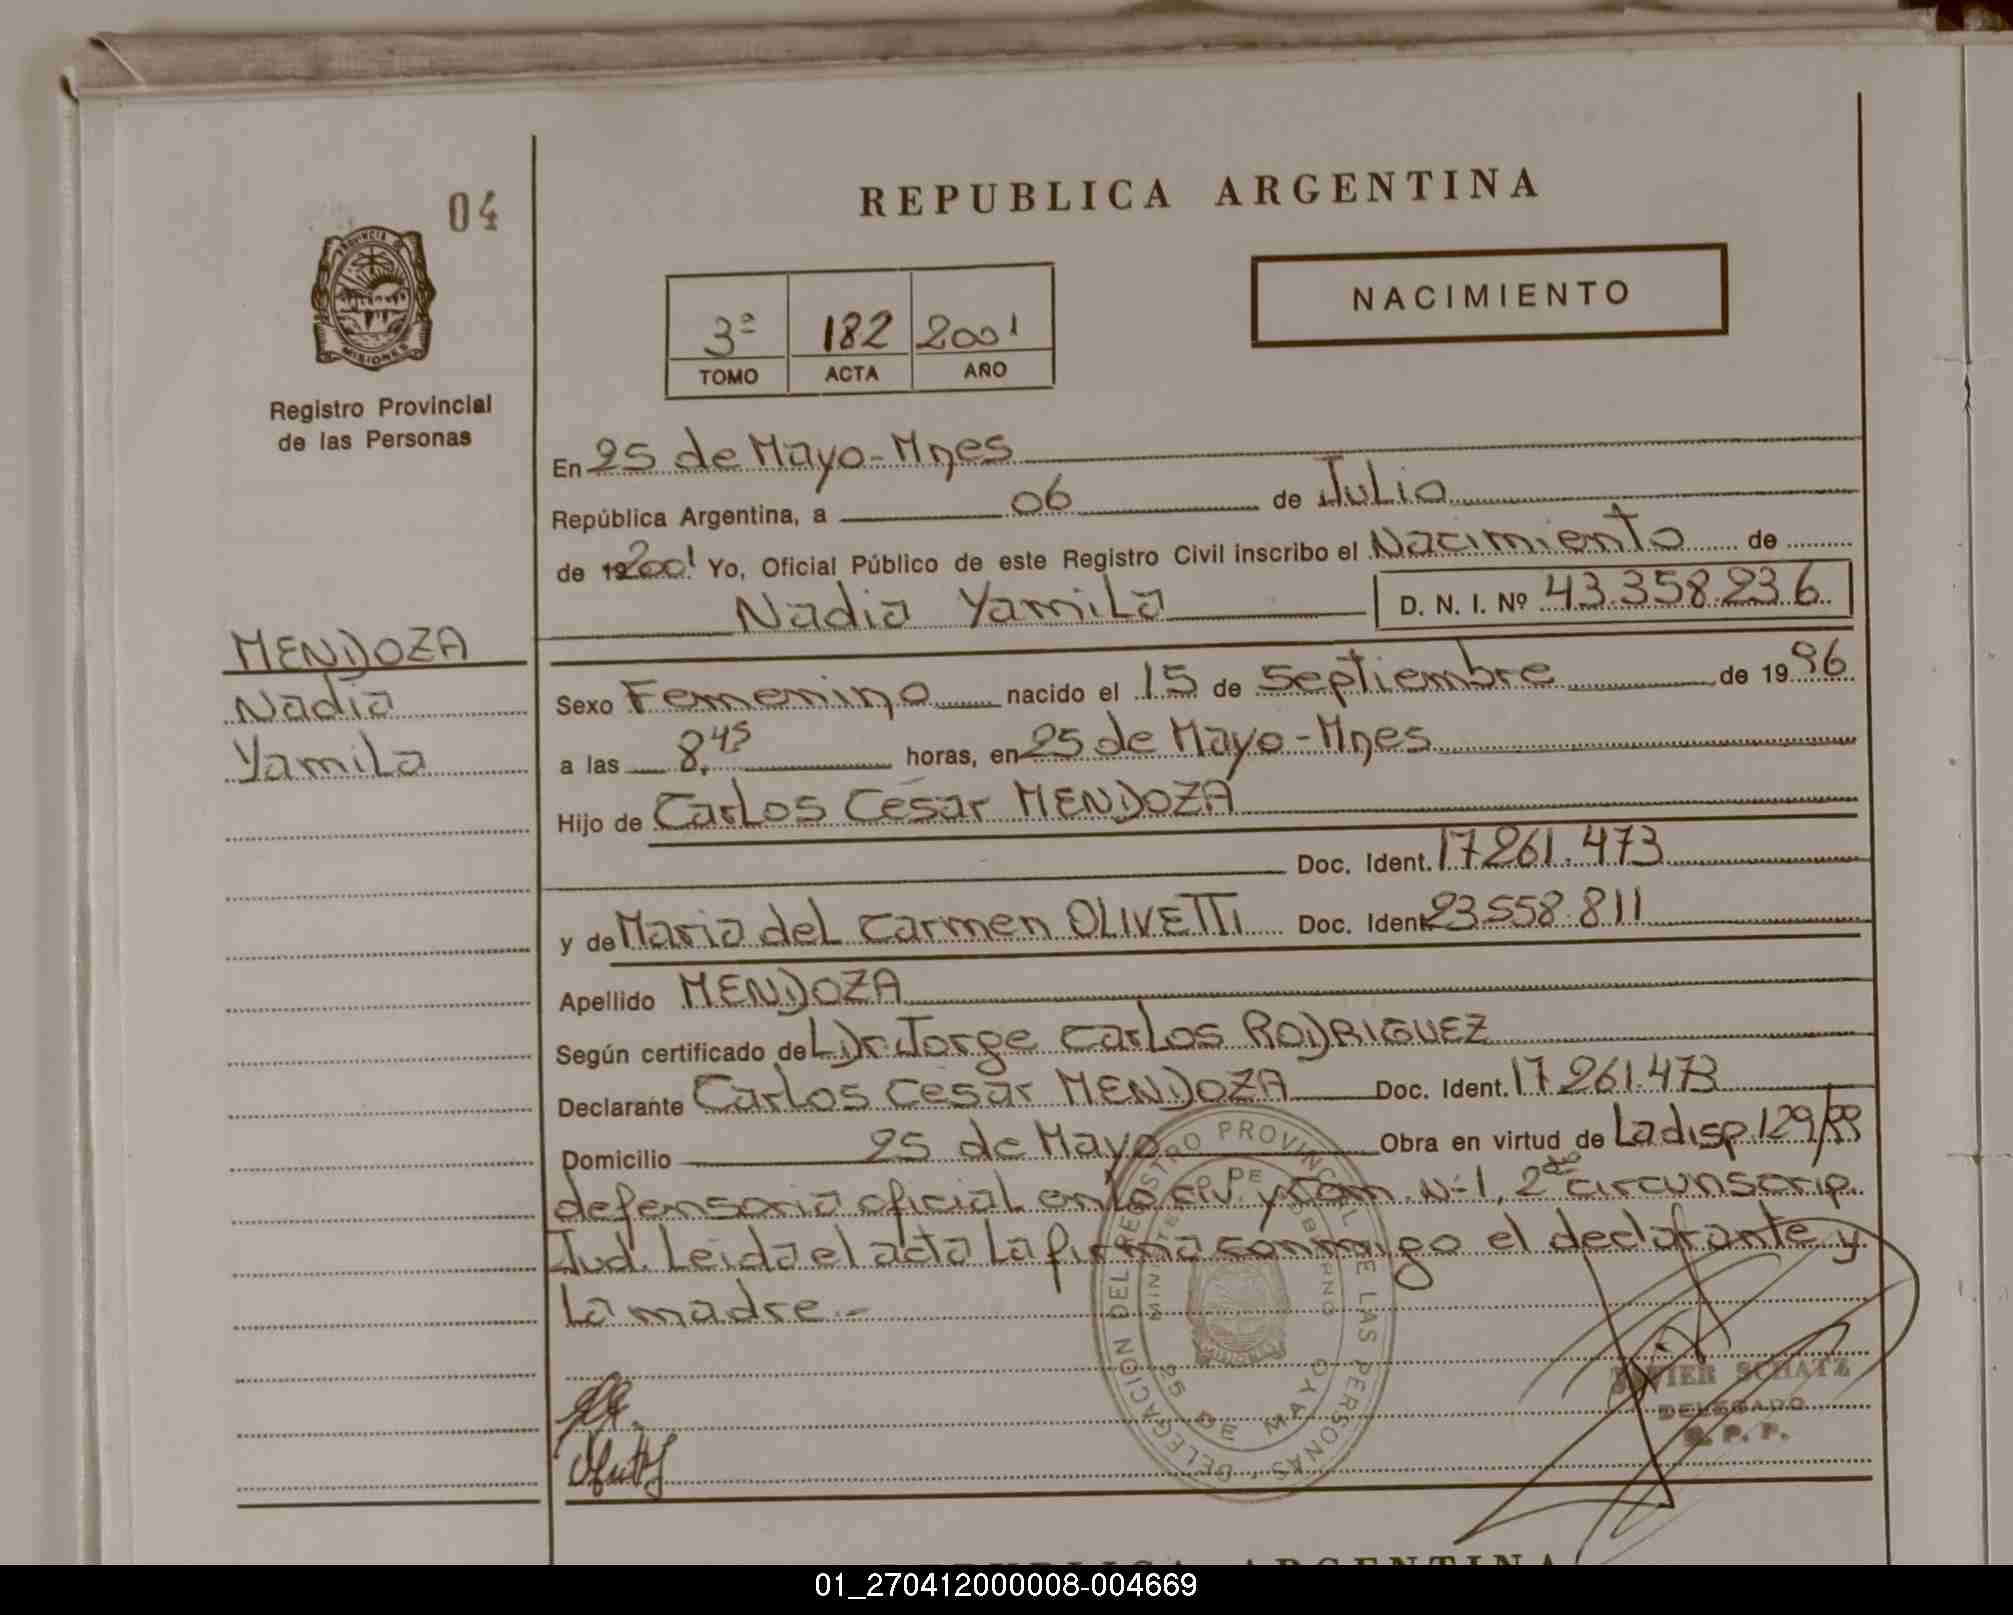 04
PROVINCIA DE
MISIONES
Registro Provincial
de las Personas
MENDOZA
Nadia
Yamila
REPUBLICA ARGENTINA
3º 182 2001
TOMO ACTA AÑO
NACIMIENTO
En 25 de Mayo-Mnes
República Argentina, a 06 de Julio
de 192001 Yo, Oficial Público de este Registro Civil inscribo el Nacimiento de
Nadia Yamila D. N. I. Nº 43.358.236
Sexo Femenino nacido el 15 de septiembre de 1996
a las 8,45 horas, en 25 de Mayo-Mnes
Hijo de Carlos Cesar MENDOZA
Doc. Ident. 17.261.473
y de Maria del Carmen OLIVETTI Doc. Ident. 23.558.811
Apellido MENDOZA
Según certificado de L Dr. Jorge Carlos RODRIGUEZ
Declarante Carlos Cesar MENDOZA Doc. Ident. 17.261.473
Domicilio 25 de Mayo Obra en virtud de La disp. 129/99
defensoria oficial en lo civ. y Com. Nº 1, 2da circunscrip.
Jud. Leida el acta la firma conmigo el declarante y
la madre.-
DELEGACION DEL REGISTRO PROVINCIAL DE LAS PERSONAS
25 DE MAYO
MISIONES
JAVIER SCHATZ
DELEGADO
R. P. P.
REPUBLICA ARGENTINA
01_270412000008-004669